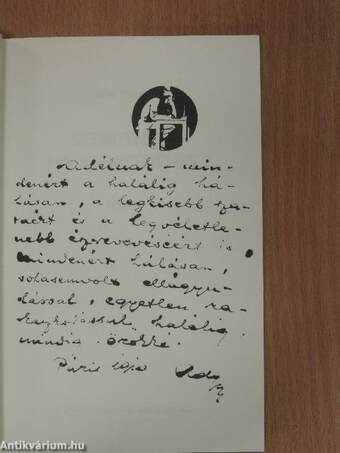 Adélnak – min-
denért a halálig há-
lásan, a legkisebb sza-
váért és a legvéletle-
nebb észrevevéséért is
mindenért hálásan,
sohasemvolt ellágyu-
lással, egyetlen ra-
gaszkodással, halálig
mindig örökké.
Páris Ady
Antikvárium.hu